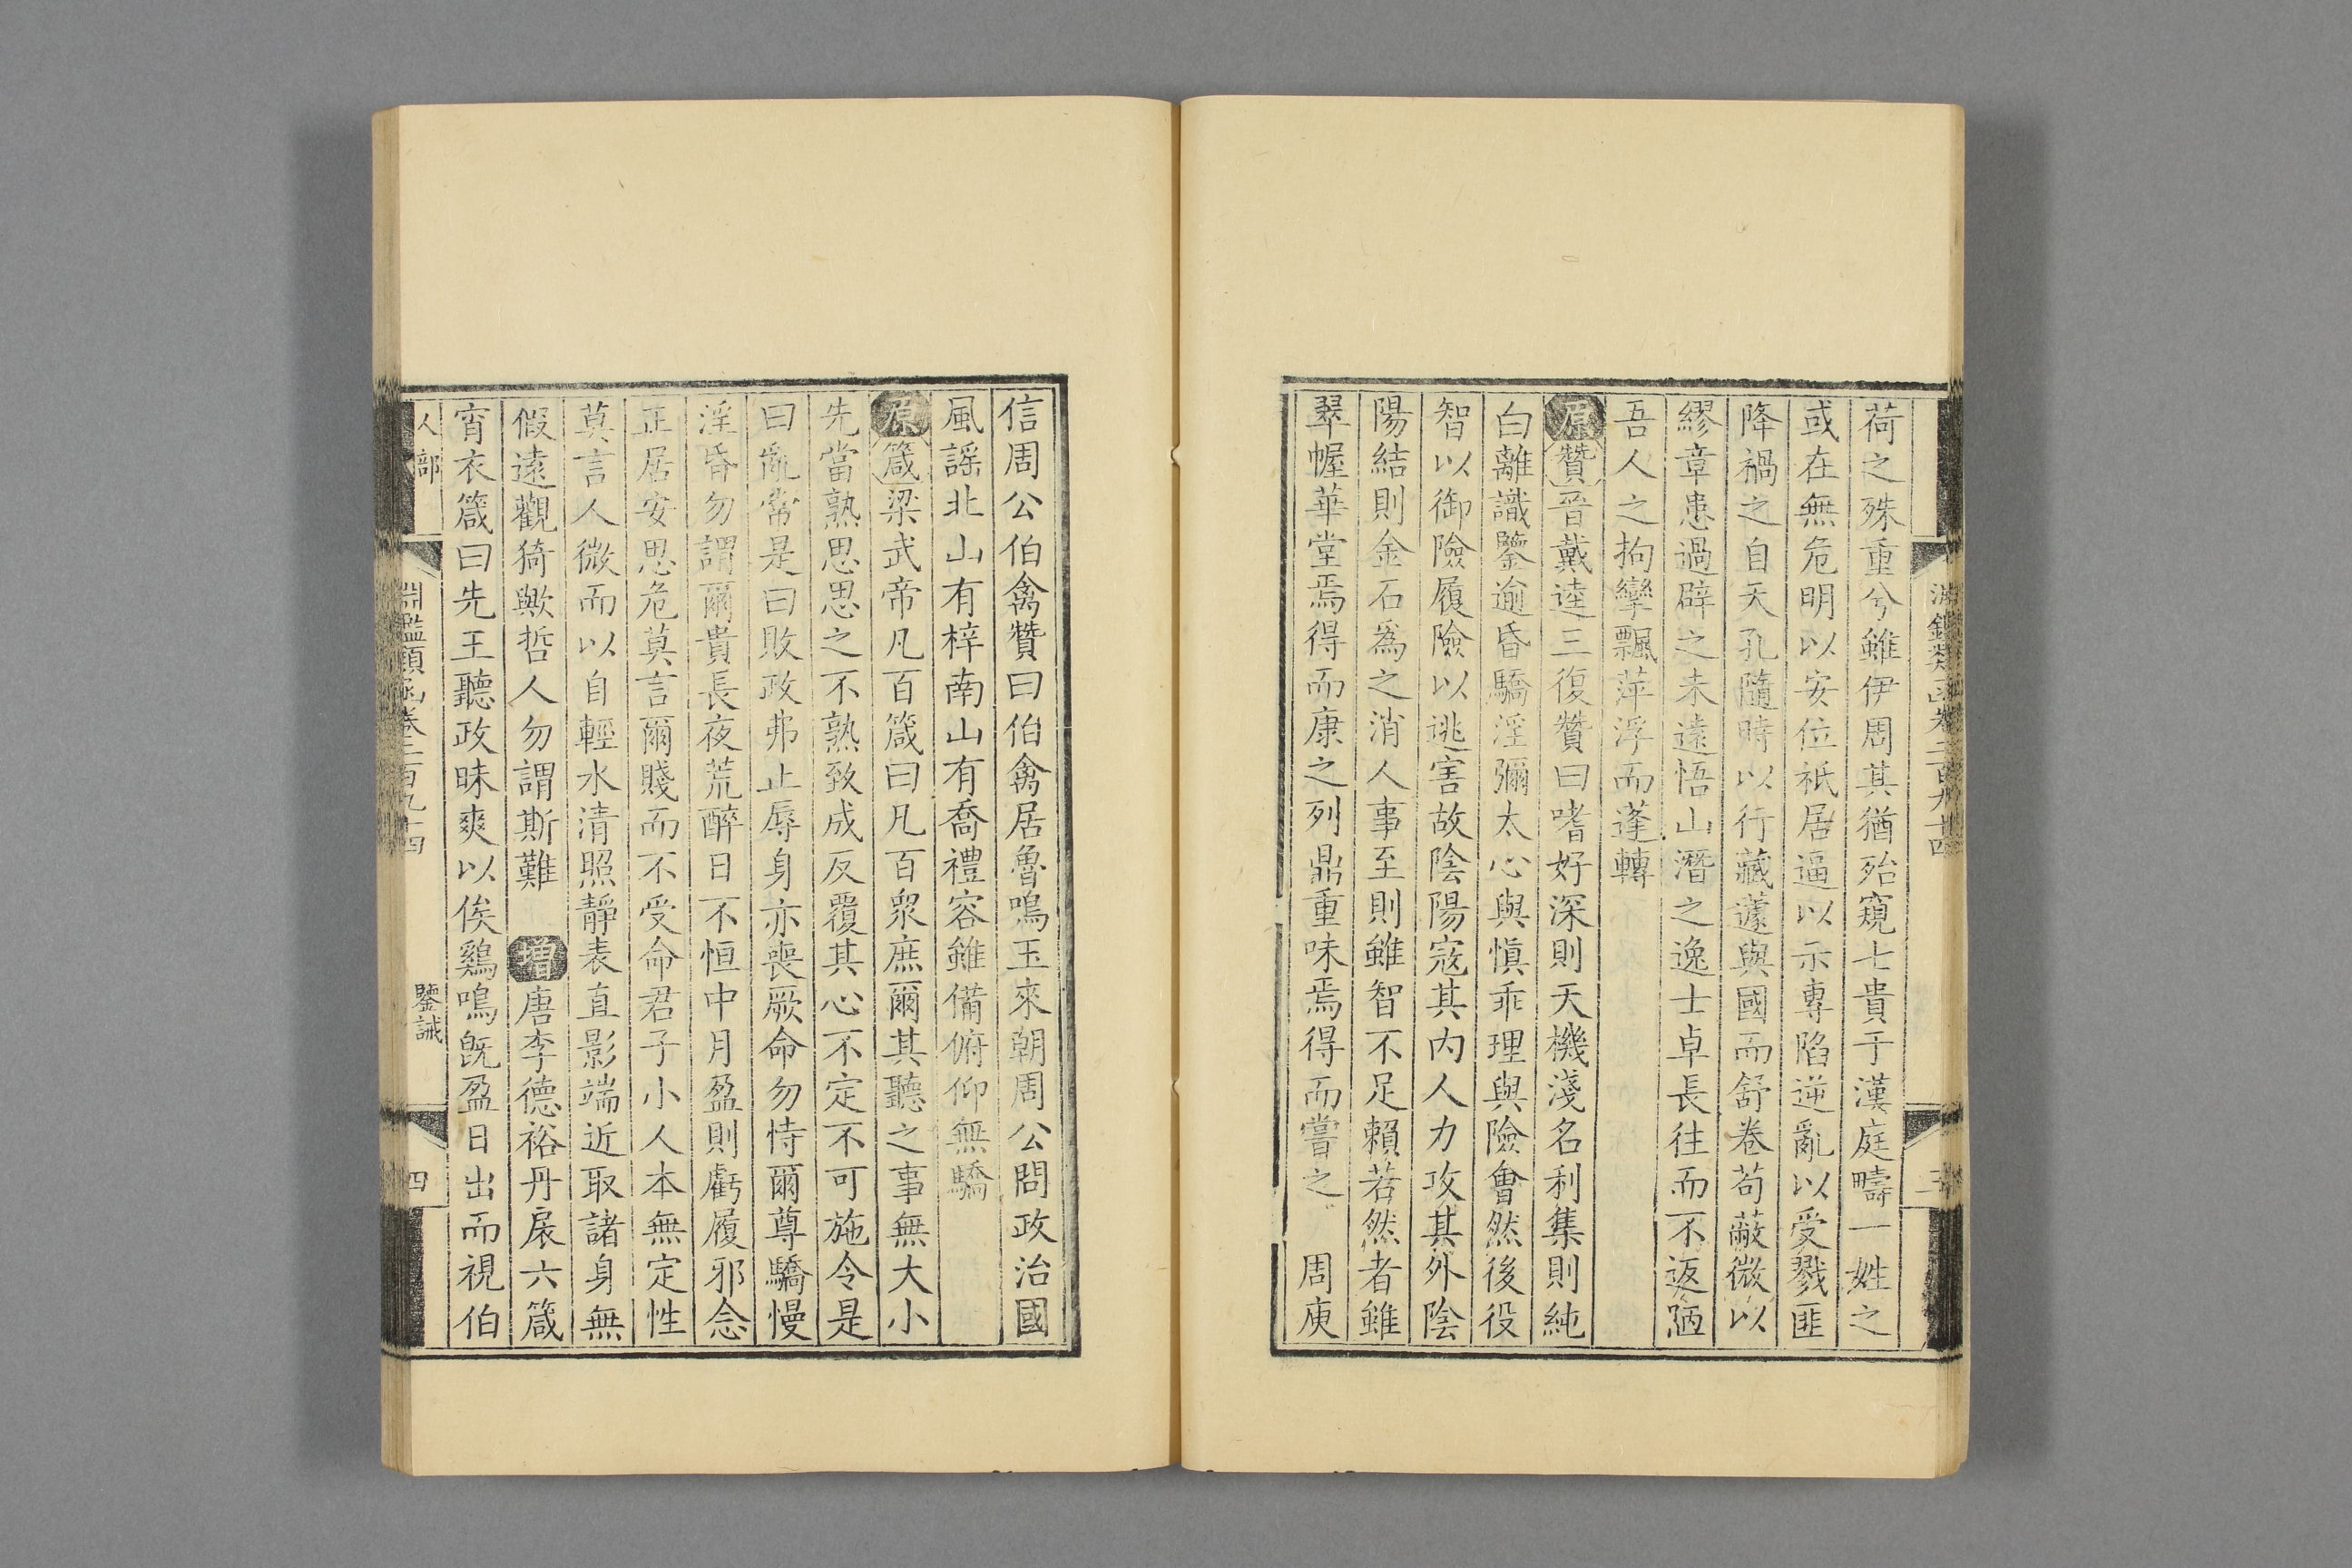 荷之殊重兮雖伊周其猶殆窺七貴于漢庭疇一姓之
或在無危明以安位祇居逼以示專陷逆亂以受戮匪
降禍之自天孔隨時以行藏蘧與國而舒卷苟蔽微以
繆章患過辟之未遠悟山潛之逸士卓長往而不返陋
吾人之拘攣飄萍浮而蓬轉
原贊晉戴逵三復贊曰嗜好深則天機淺名利集則純
白離識鑒逾昏驕淫彌太心與慎乖理與險會然後役
智以御險履險以逃害故陰陽寇其內人力攻其外陰
陽結則金石爲之消人事至則雖智不足賴若然者雖
翠幄華堂焉得而康之列鼎重味焉得而嘗之 周庾
信周公伯禽贊曰伯禽居魯鳴玉來朝周公問政治國
風謠北山有梓南山有喬禮容雖備俯仰無驕
原箴梁武帝凡百箴曰凡百衆庶爾其聽之事無大小
先當熟思思之不熟致成反覆其心不定不可施令是
曰亂常是曰敗政弗止辱身亦喪厥命勿恃爾尊驕慢
淫昏勿謂爾貴長夜荒醉日不恒中月盈則虧履邪念
正居安思危莫言爾賤而不受命君子小人本無定性
莫言人微而以自輕水清照靜表直影端近取諸身無
假遠觀猗歟哲人勿謂斯難 增唐李德裕丹扆六箴
宵衣箴曰先王聽政昧爽以俟鷄鳴旣盈日出而視伯
人部
淵鑑類函卷三百九十四
鑒誡
四